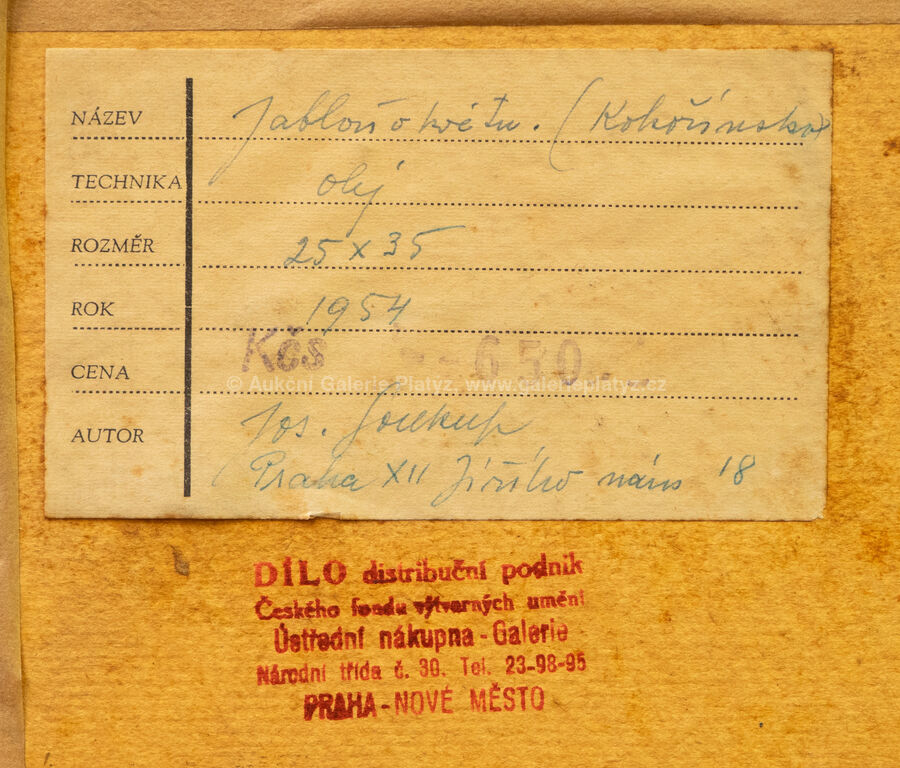 NÁZEV Jabloň v květu. (Kokořínsko)
TECHNIKA olej
ROZMĚR 25 x 35
ROK 1954
CENA Kčs --650.--
© Aukční Galerie Platýz, www.galerieplatyz.cz
AUTOR Jos. Soukup
(Praha XII Jiřího nám 18
DÍLO distribuční podnik
Českého fondu výtvarných umění
Ústřední nákupna - Galerie
Národní třída č. 30. Tel. 23-98-95
PRAHA - NOVÉ MĚSTO